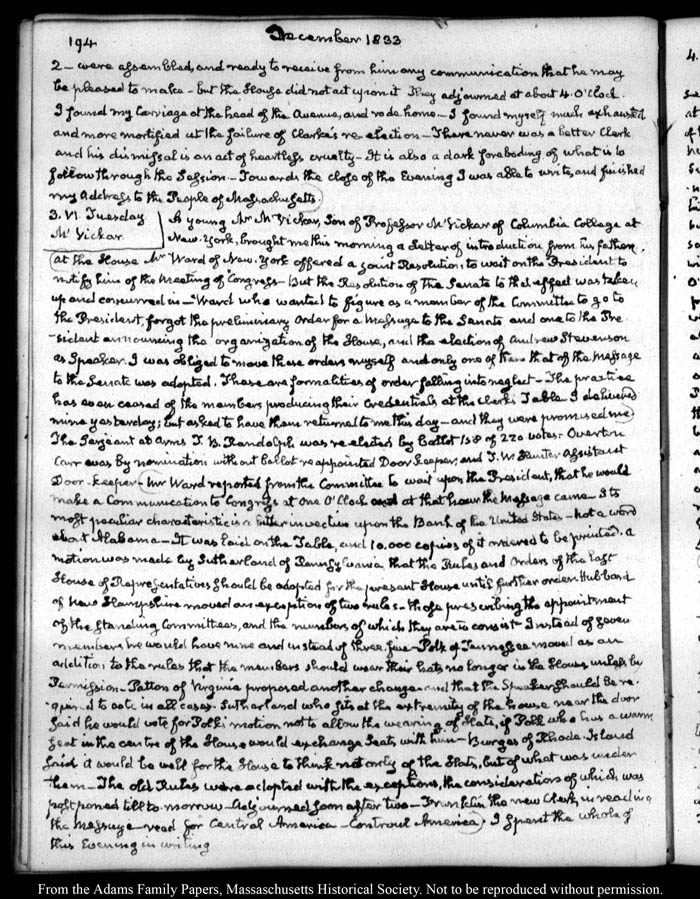 194
December 1833
2 - were assembled, and ready to receive from him any communication that he may
be pleased to make - but the House did not act upon it They adjourned at about 4. O'Clock.
I found my Carriage at the head of the Avenue, and rode home - I found myself much exhausted
and more mortified at the failure of Clarke's re-election - There never was a better Clerk
and his dismissal is an act of heartless cruelty - It is also a dark foreboding of what is to
follow through the Session - Towards the close of the Evening I was able to write, and finished
my Address to the People of Massachusetts.
3. VI. Tuesday
McVickar
A young Mr McVickar, Son of Professor McVickar of Columbia College at
New-York, brought me this morning a Letter of introduction from his father.
At the House Mr Ward of New-York offered a joint Resolution, to wait on the President to
notify him of the Meeting of Congress - But the Resolution of the Senate to that effect was taken
up and concurred in - Ward who wanted to figure as a member of the Committee to go to
the President, forgot the preliminary Order for a Message to the Senate and one to the Pre-
-sident announcing the organization of the House, and the election of Andrew Stevenson
as Speaker. I was obliged to move these orders myself and only one of them that of the Message
to the Senate was adopted. These are formalities of order falling into neglect - The practice
has even ceased of the members producing their Credentials at the Clerk's Table. I delivered
mine yesterday; but asked to have them returned to me this day - and they were promised me
The Sergeant at Arms T. B. Randolph was re-elected by ballot 158 of 220 votes. Overton
Carr was by nomination without ballot reappointed Door keeper, and J. W. Hunter assistant
Door-keeper - Mr Ward reported from the Committee to wait upon the President, that he would
make a Communication to Congress at One O'Clock and at that hour the Message came - Its
most peculiar characteristic is a bitter invective upon the Bank of the United States - not a word
about Alabama - It was laid on the Table, and 10,000 copies of it ordered to be printed. A
motion was made by Sutherland of Pennsylvania that the Rules and Orders of the last
House of Representatives should be adopted for the present House until further order. Hubbard
of New Hampshire moved an exception of two rules - those prescribing the appointment
of the Standing Committees, and the numbers of which they are to consist - Instead of seven
members he would have nine and instead of three, five - Polk of Tennessee moved as an
addition to the rules that the members should wear their hats no longer in the House, unless by
Permission - Patton of Virginia proposed another change and that the Speaker should be re-
-quired to vote in all cases. Sutherland who sits at the extremity of the house near the door
said he would vote for Polk's motion not to allow the wearing of Hats, if Polk who has a warm
seat in the centre of the House would exchange Seats with him - Burges of Rhode-Island
said it would be well for the House to think not only of the Hats, but of what was under
them - The old Rules were adopted with the exceptions, the consideration of which was
postponed till to-morrow - Adjourned soon after two - Franklin the new Clerk in reading
the Message - read for Central America - Controul America. I spent the whole of
this Evening in writing
From the Adams Family Papers, Massachusetts Historical Society. Not to be reproduced without permission.